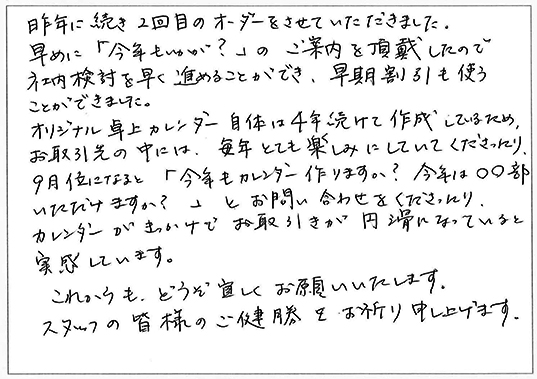 昨年に続き2回目のオーダーをさせていただきました。
早めに「今年もいかが?」の ご案内を頂戴したので
社内検討を早く進めることができ、早期割引も使う
ことができました。
オリジナル卓上カレンダー自体は4年続けて作成しているため、
お取引先の中には、毎年とても楽しみにしていてくださったり、
9月位になると「今年もカレンダー作りますか?今年は〇〇部
いただけますか?」とお問い合わせをくださったり、
カレンダーがきっかけでお取引きが円滑になっていると
実感しています。
これからも、どうぞ宜しくお願いいたします。
スタッフの皆様のご健勝をお祈り申し上げます。